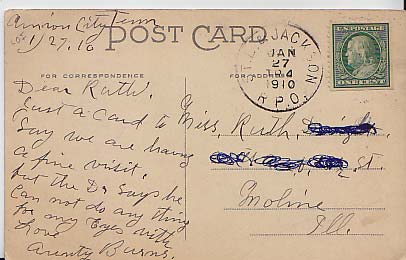 Union City Tenn
1/27.10
POST CARD
FOR CORRESPONDENCE
FOR ADDRESS
JACKSON
JAN
27
TR4
1910
R.P.O.
Dear Ruth.
Just a card to
Say we are having
a fine visit.
but the Dr Says he
Can not do any thing
for my Eyes with
Love
Burns.
Miss, Ruth
St.
Moline
Ill.